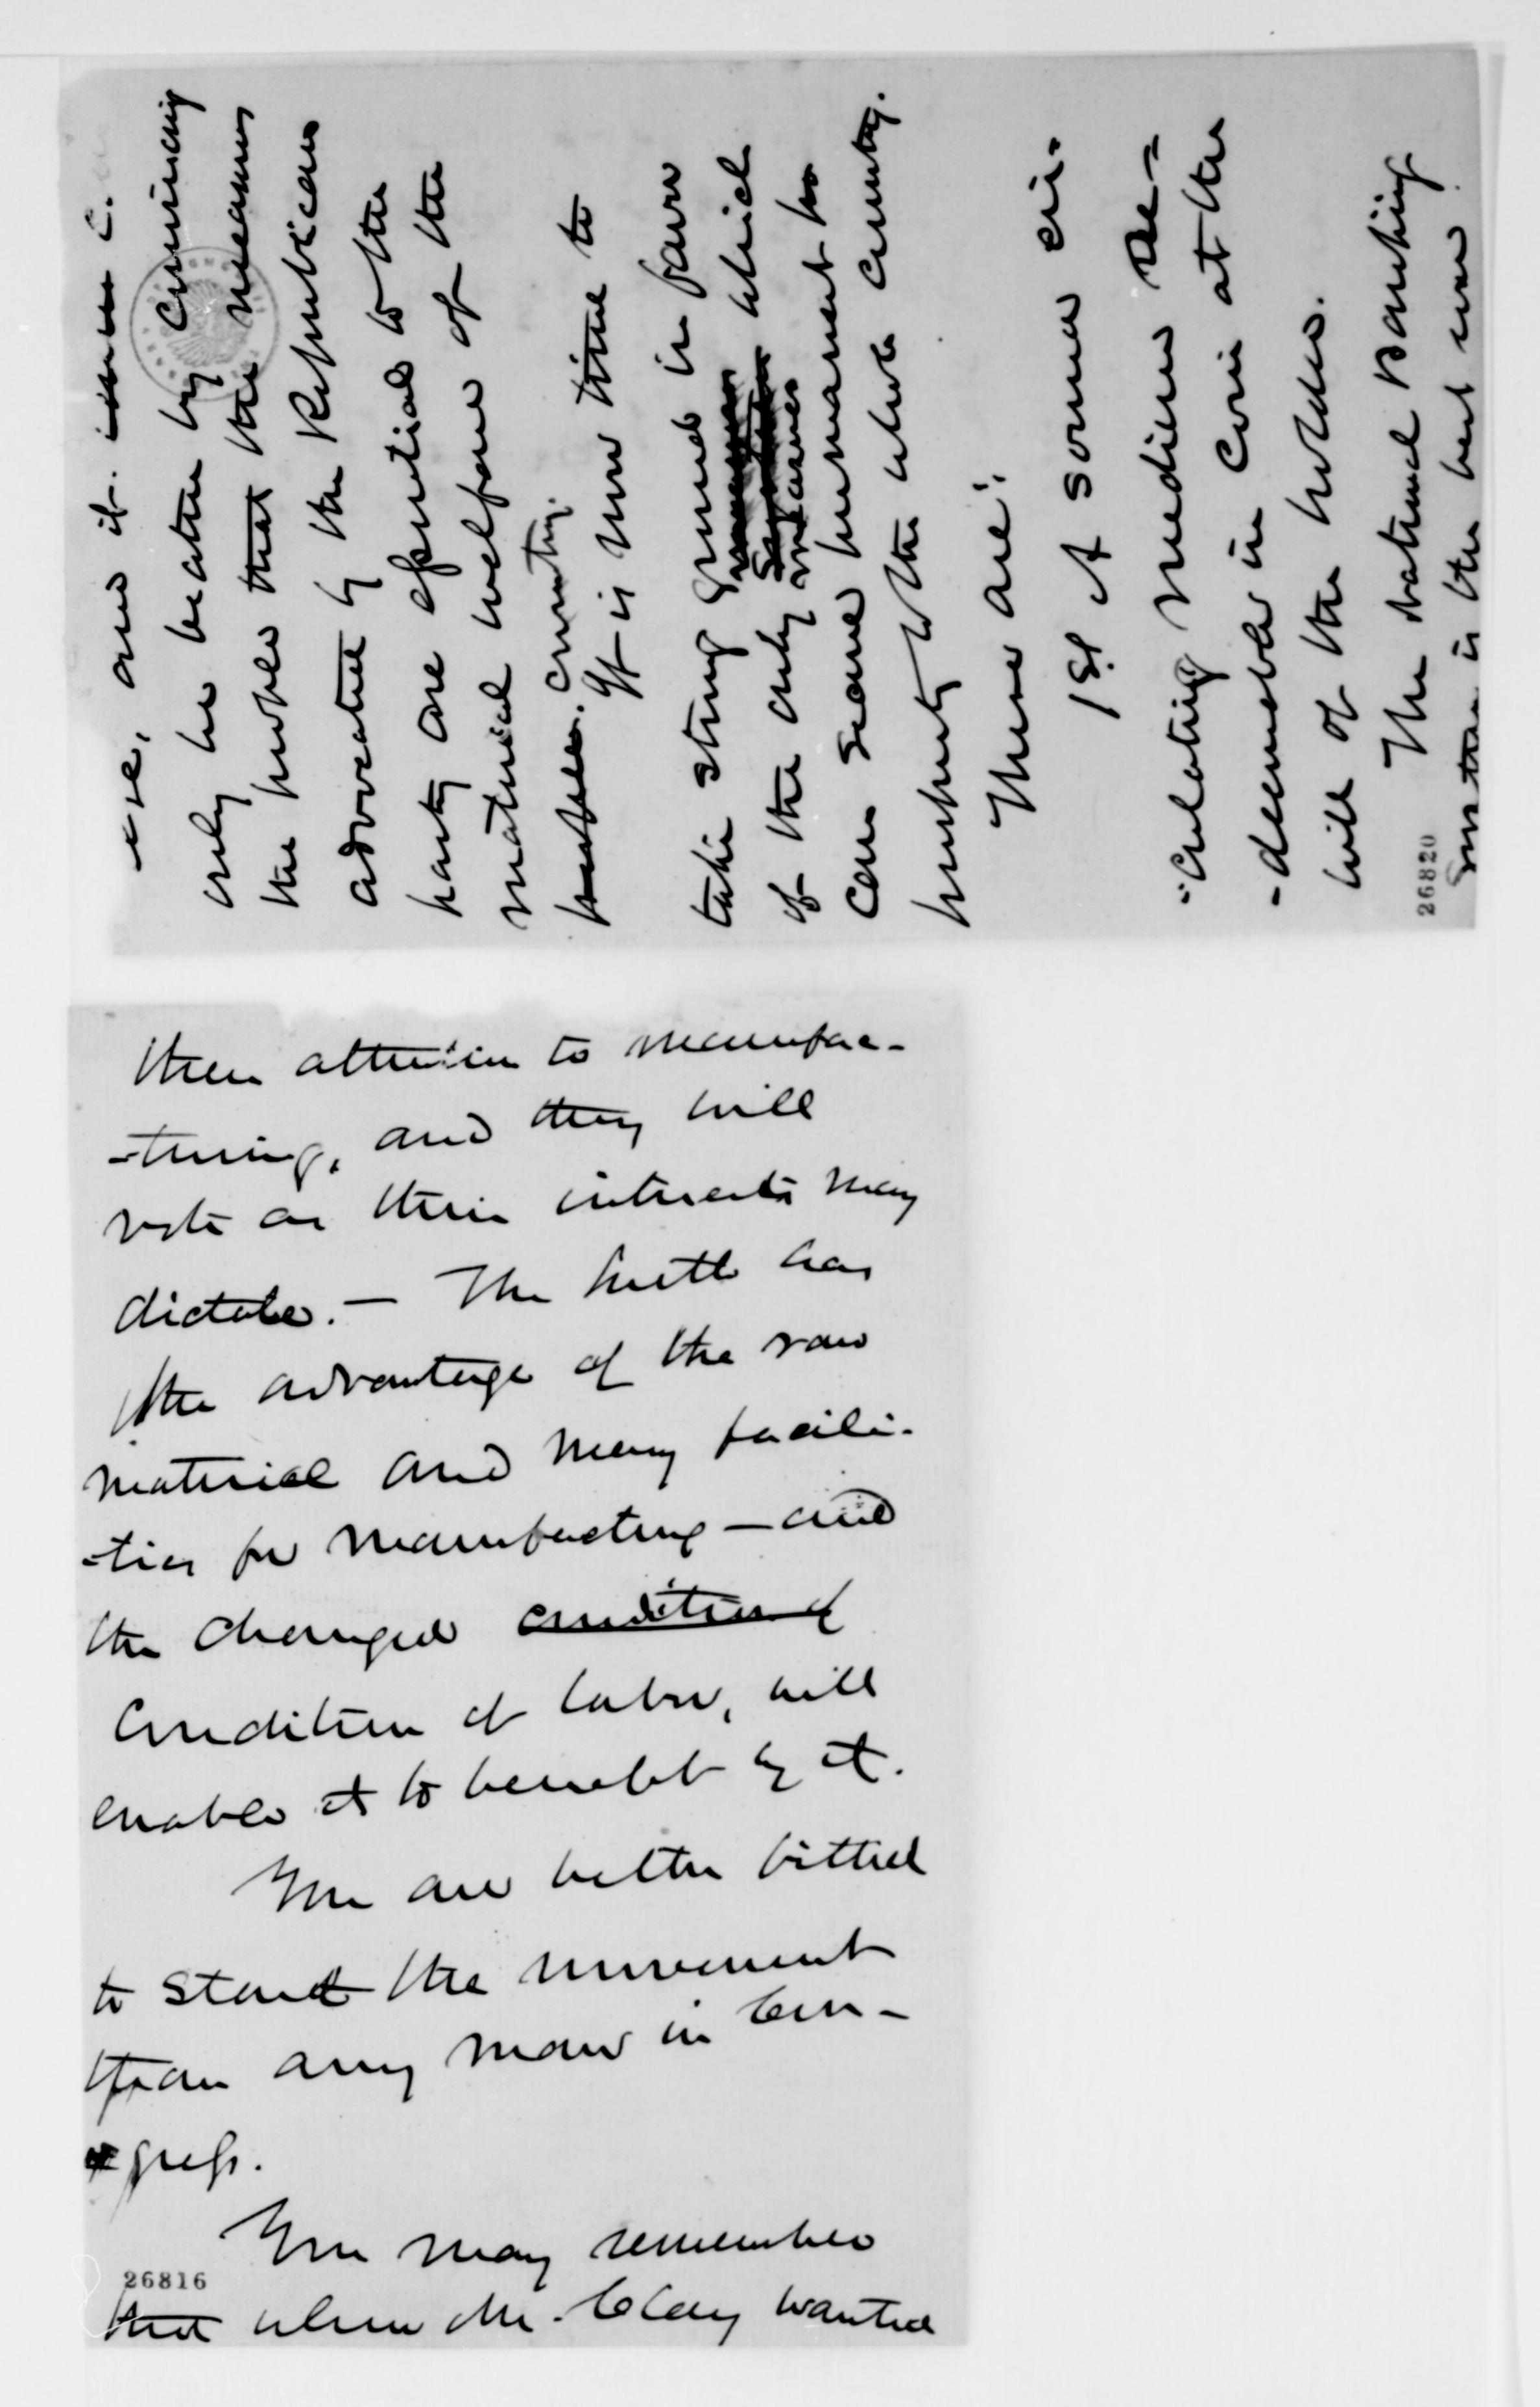 and if
only be beaten by convincing
the people that the measures
advocated by the Republican
party are essential to the
material welfare of the
peoples. country.
It is now time to
take strong ground in favor
of the only measures which
can secure permanent pros
perity to the whole country.
These are:
1st A sound cir-
-culating medium re=
-deemable in Coin at the
will of the holder.
The National Banking
system is the best one
26820
their attention to manufac-
-turing, and they will
vote as their interests may
dictate. — The South has
the advantage of the raw
material and many facili-
-ties for manufacturing — and
the changed condition of
condition of labor, will
enable it to benefit by it.
You are better fitted
to start the movement
than any man in Con-
gress.
You may remember
26816
that when Mr. Clay wanted